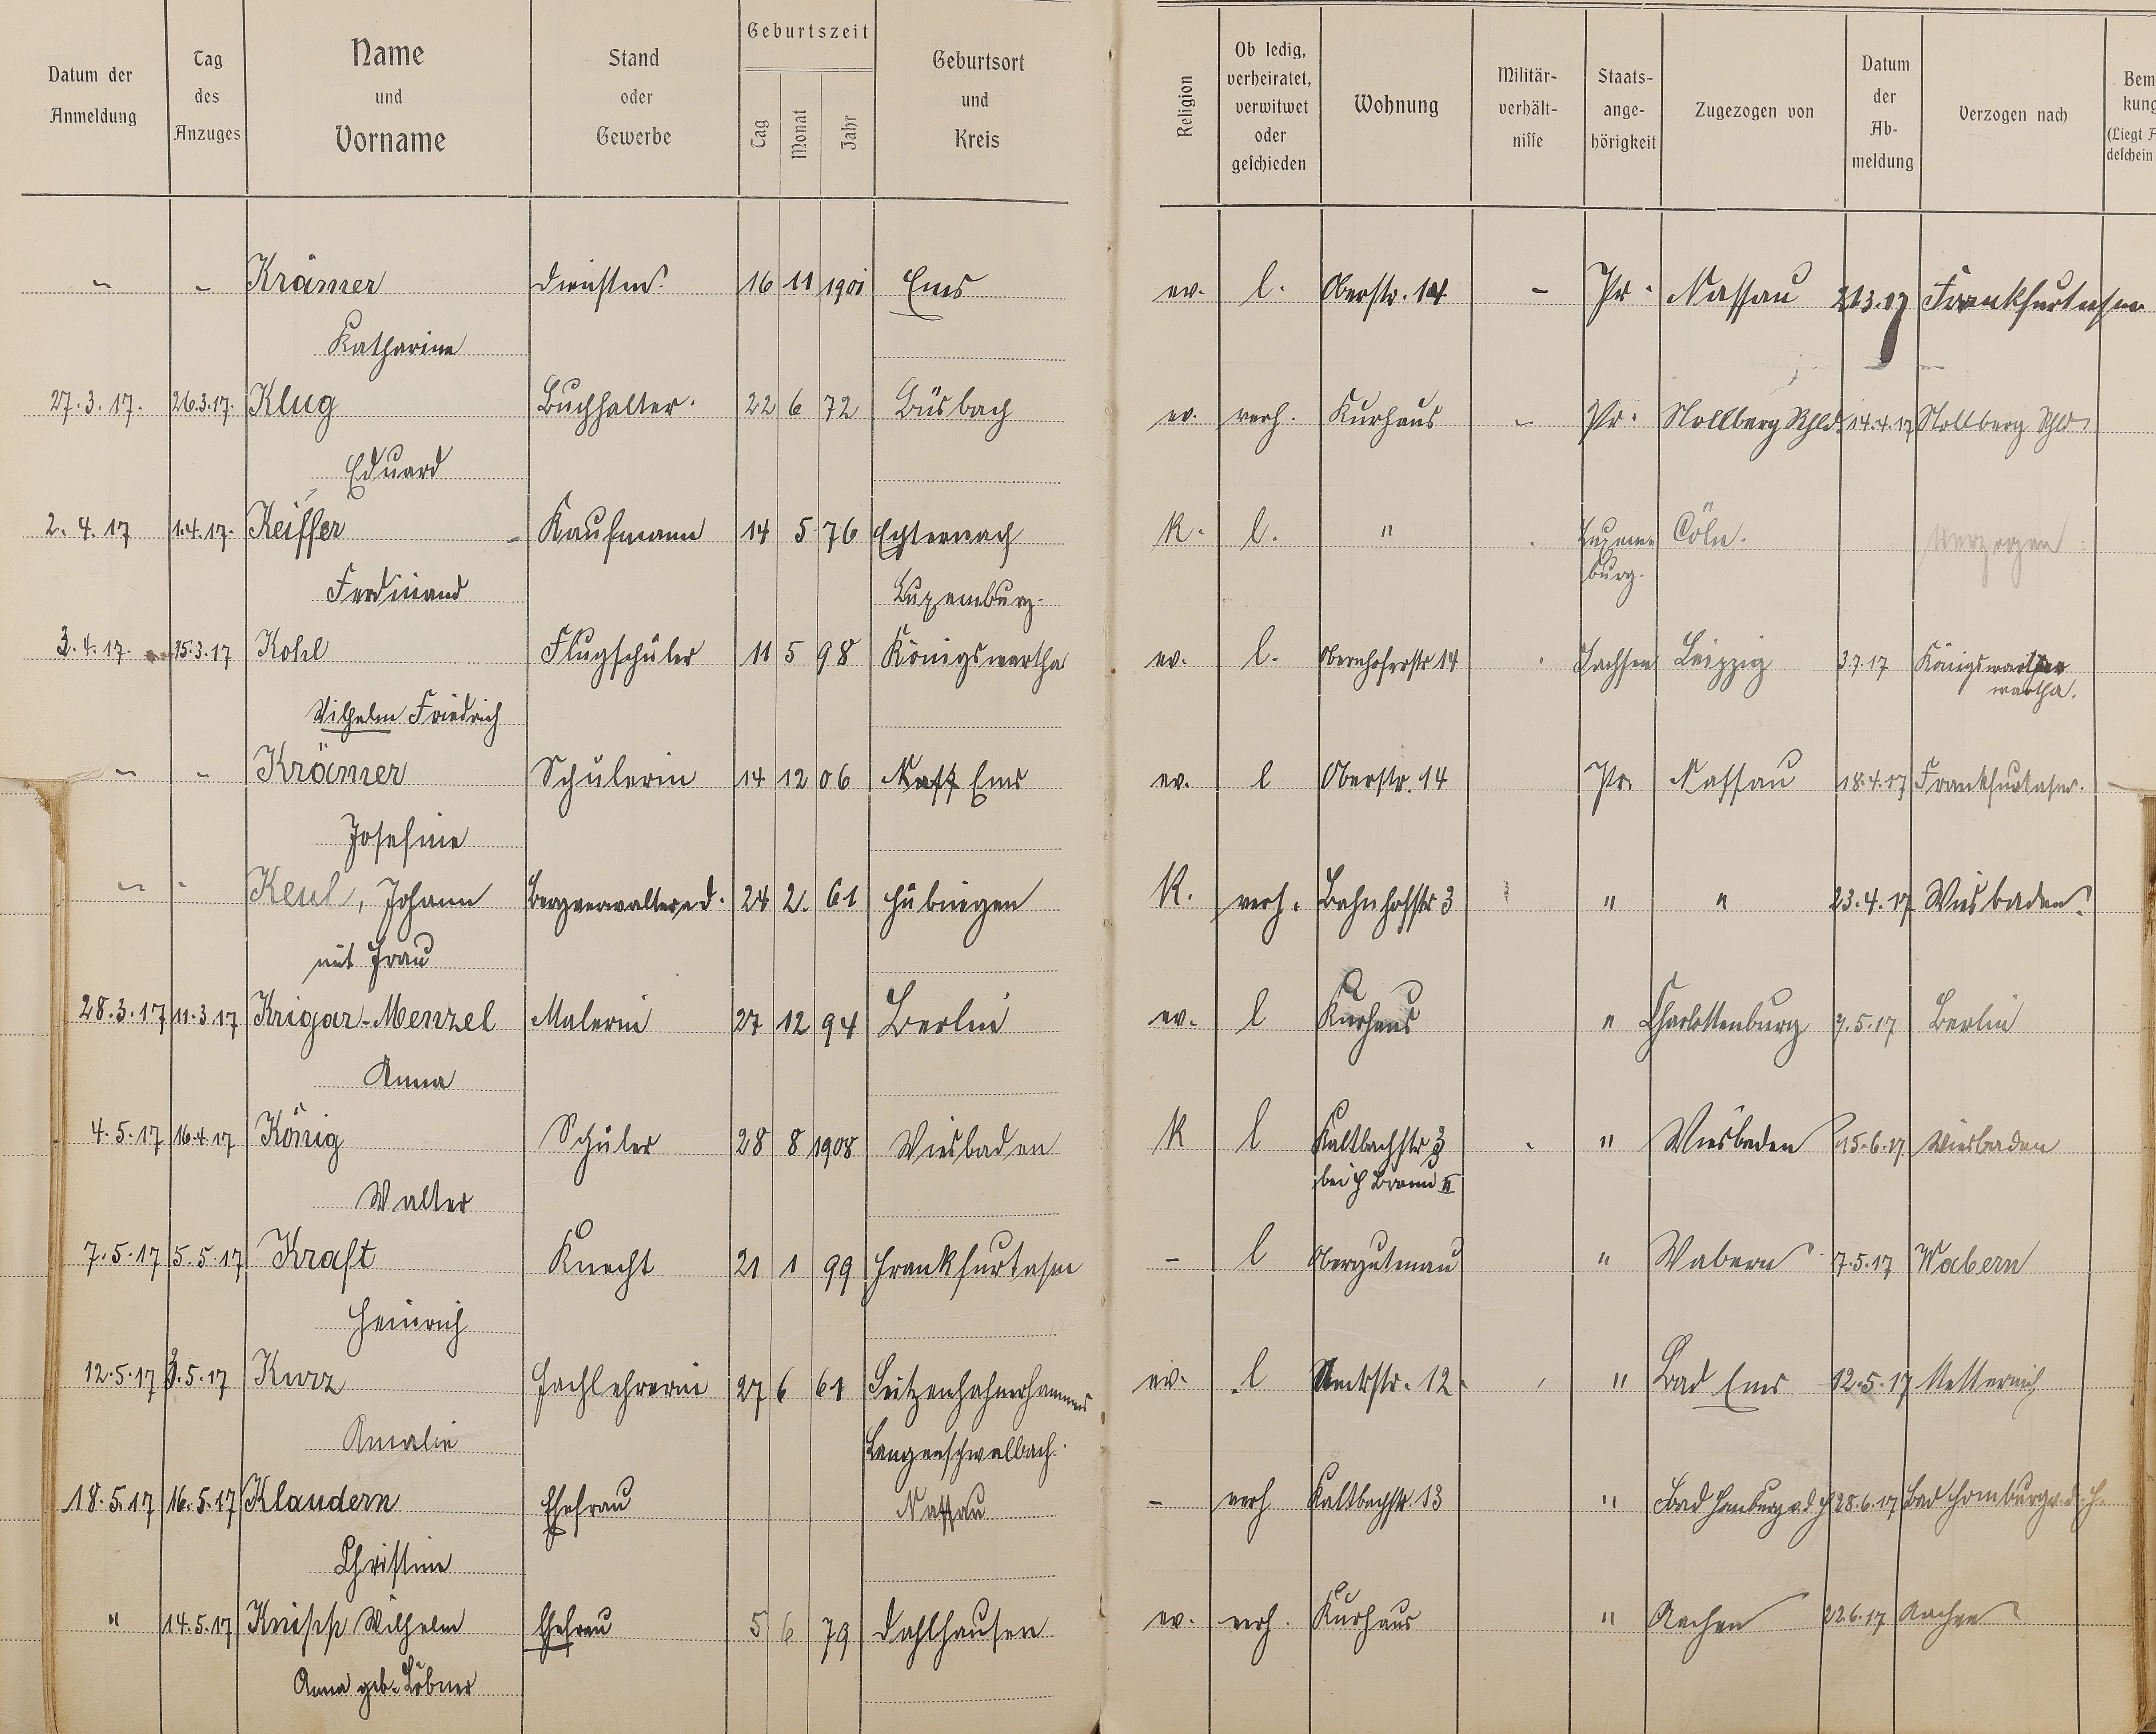 Datum der Anmeldung | Tag des Anzuges | Name und Vorname | Stand oder Gewerbe | Geburtszeit Tag Monat Jahr | Geburtsort und Kreis | Religion | Ob ledig, verheiratet, verwitwet oder geschieden | Wohnung | Militär-verhält-nisse | Staats-ange-hörigkeit | Zugezogen von | Datum der Ab-meldung | Verzogen nach | Bem kung (Liegt deschein
" " Krämer 16 11 1901 Ems ev. l. Oberstr. 14 - Pr. Nassau 21.3.17 Frankfurt a/m
Katharine
27.3.17. 26.3.17. Klug Buchhalter. 22 6 72 Büsbach ev. verh. Kurhaus - Pr. Stollberg Rhld. 14.4.17 Stollberg Rhld
Eduard
2.4.17 1.4.17. Keiffer Kaufmann 14 5 76 Echternach K. l. " Luxem- Cöln. Verzogen
Ferdinand Luxemburg. burg.
3.4.17. 15.3.17 Kohl Flugschüler 11 5 98 Königswartha ev. l. Obernhoferstr 14 Sachsen Leipzig 3.7.17 Königs
Wilhelm Friedrich wartha.
" " Krämer Schülerin 14 12 06 Nass Ems ev. l Oberstr. 14 Pr. Nassau 18.4.17 Frankfurt a/m.
Josefine
" " Keul, Johann Bergverwalter a.d. 24 2. 61 Hübingen K. verh. Bahnhofstr 3 " " 23.4.17 Wiesbaden
mit Frau
28.3.17 11.3.17 Krigar-Menzel Malerin 27 12 94 Berlin ev. l Kurhaus " Charlottenburg 7.5.17 Berlin
Anna
4.5.17 16.4.17 König Schüler 28 8 1908 Wiesbaden K l Kaltbachstr 3 " Wiesbaden 15.6.17 Wiesbaden
Walter bei H Bronn II
7.5.17 5.5.17 Kraft Knecht 21 1 99 Frankfurt a/m - l Obergutenau " Wabern 7.5.17 Wabern
Heinrich
12.5.17 3.5.17 Kurz Fachlehrerin 27 6 61 Seitzenhahnerhammer ev. l 12. " Bad Ems 12.5.17 Metternich
Amalie Langenschwalbach.
18.5.17 16.5.17 Klaudern Ehefrau Nassau - verh Kaltbachstr. 13 " Bad Homburg v d H 28.6.17 Bad Homburg v.d.H.
Christine
" 14.5.17 Knipp Wilhelm Ehefrau 5 6 79 Dahlhausen ev. verh. Kurhaus " Aachen 22.6.17 Aachen
Anna geb. Löbner